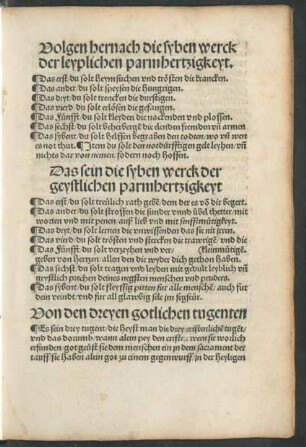 Volgen hernach die syben werck
der leyplichen parmhertzigkeyt.
¶ Das erst· du solt heymsuchen vnd trösten die krancken.
¶ Das ander· du solt speysen die hungrigen.
¶ Das dryt· du solt trencken die durstigen.
¶ Das vierd· du solt erlösen die gefangen.
¶ Das fünfft· du solt kleyden die nackenden vnd plossen.
¶ Das sechst· du solt beherberg die elenden fremden vn̄ armen
¶ Das sybent· du solt helffen begraben den todem· wo vn̄ wen
es not thut. ¶ Item du solt den notdürfftigen gelt leyhen· vn̄
nichts dar von nemen· sodern noch hoffen.
Das sein die syben werck der
geystlichen parmhertzigkeyt
¶ Das erst· du solt treülich rath gebē· dem der es vō dir begert.
¶ Das ander· du solt stroffen die sunder vnnd übel thetter· mit
worten vnd mit penen· auß lieb vnd mit senfftmütigkeyt.
¶ Das dryt· du solt lernen die vnwissenden das sie nit jrren.
¶ Das vierd· du solt trösten vnd stercken die trawrigē· vnd die
¶ Das fünfft· du solt verzeyhen vnd ver⸗ (kleinmütigē.
geben von hertzen· aller den die wyder dich gethon haben.
¶ Das sechst· du solt tragen vnd leyden mit gedult leyblich vn̄
geystlich prechen deines negsten menschen vnd prudern.
¶ Das sybent· du solt fleyssig pitten für alle menschē· auch für
dein veindt· vnd für all glawbig sele jm fegfür.
Von den dreyen gotlichen tugenten
¶ Es sein drey tugent· die heyst man die drey cristenlichē tugēt·
vnd das dorumb· wann alein pey den cristē· wen sie worlich
erfunden· got geüst sie dem menschen ein in dem sacrament der
tauff· sie haben alein got zu einem gegenwurff· in der heyligen